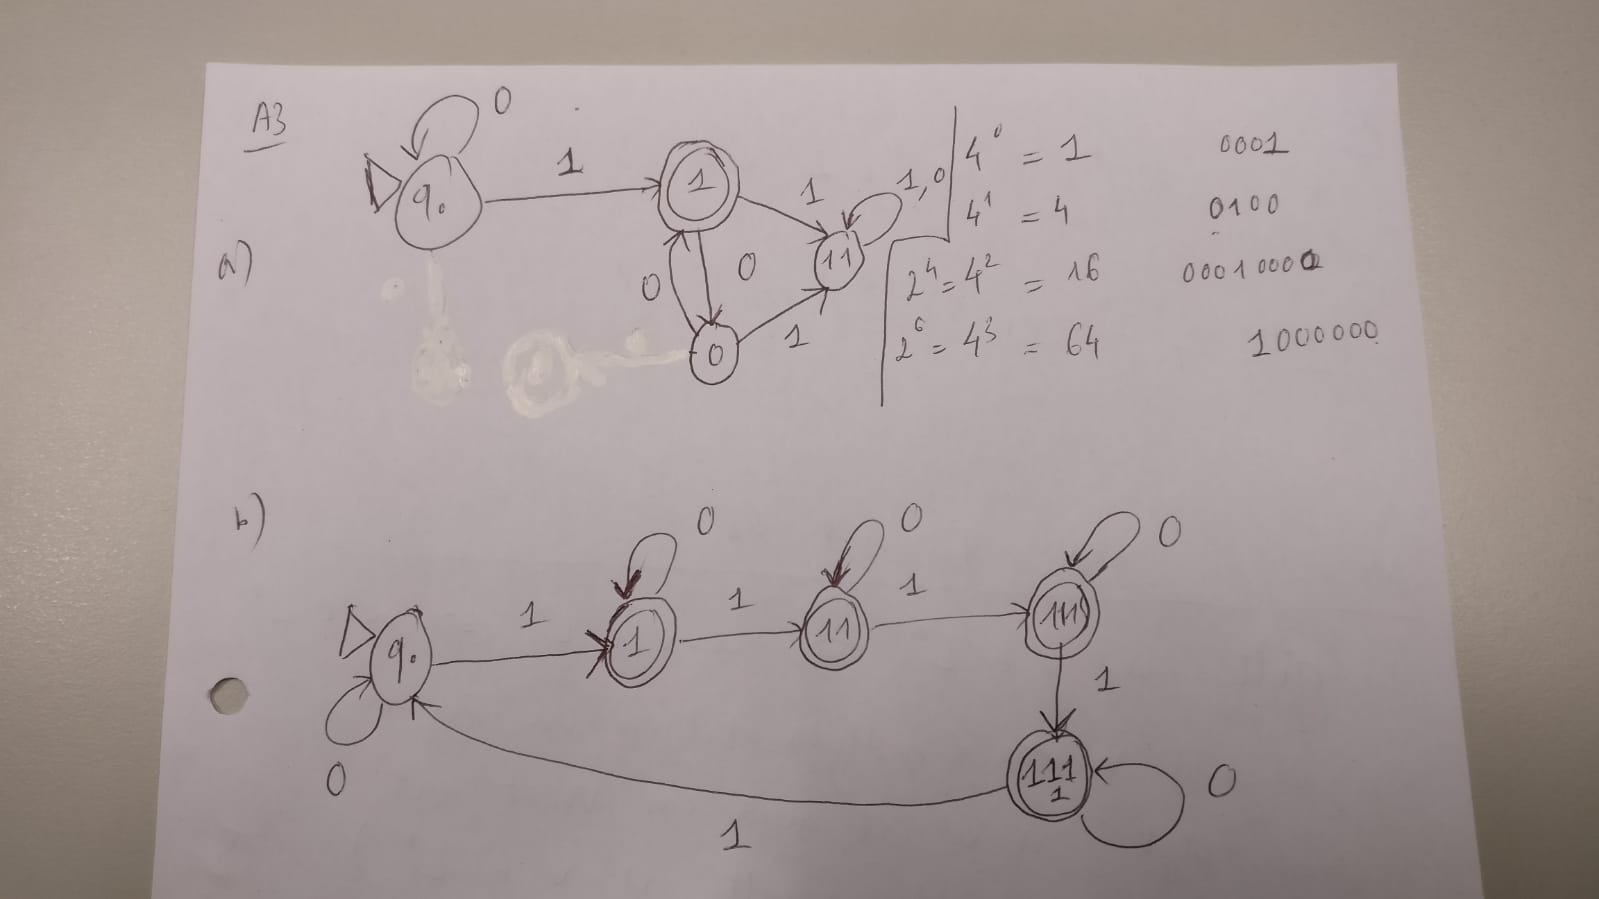 A3
0
1
q.
1
1
1,0
11
0
0
0
1
a)
4⁰ = 1 0001
4¹ = 4 0100
2⁴ = 4² = 16 00010000
2⁶ = 4³ = 64 1000000
b)
0
0
0
1
1
1
q.
1
11
111
1
0
111
1
0
1